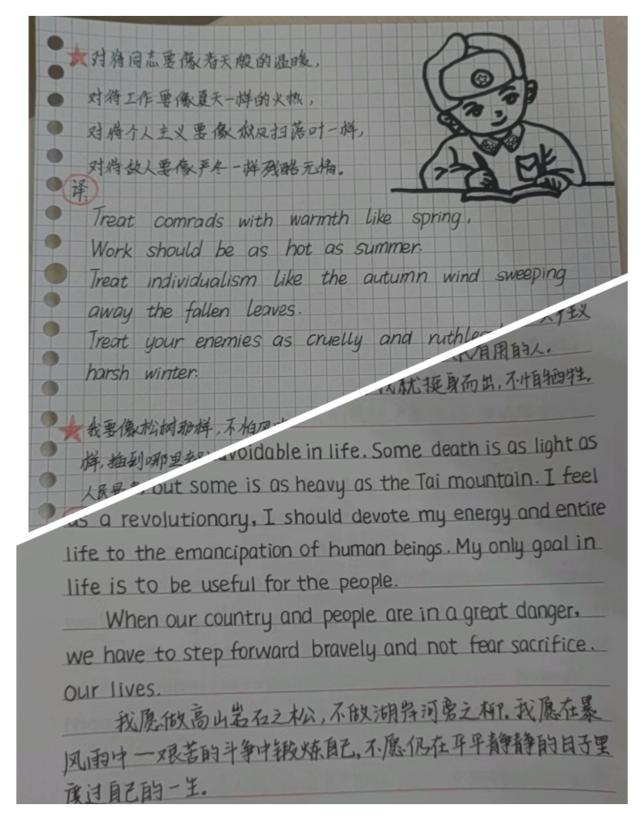 对待同志要像春天般的温暖,
对待工作要像夏天一样的火热,
对待个人主义要像秋风扫落叶一样,
对待敌人要像严冬一样残酷无情。
译
Treat comrads with warmth like spring,
Work should be as hot as summer.
Treat individualism like the autumn wind sweeping
away the fallen leaves.
Treat your enemies as cruelly and
harsh winter.
我要像松树那样,不怕
样,插到哪里
人民
有用的人。
我就挺身而出,不怕牺牲。
avoidable in life. Some death is as light as
but some is as heavy as the Tai mountain. I feel
as a revolutionary, I should devote my energy and entire
life to the emancipation of human beings. My only goal in
life is to be useful for the people.
When our country and people are in a great danger,
we have to step forward bravely and not fear sacrifice.
our lives.
我愿做高山岩石之松,不做湖岸河旁之柳。我愿在暴
风雨中一艰苦的斗争中锻炼自己,不愿仍在平平静静的日子里
度过自己的一生。